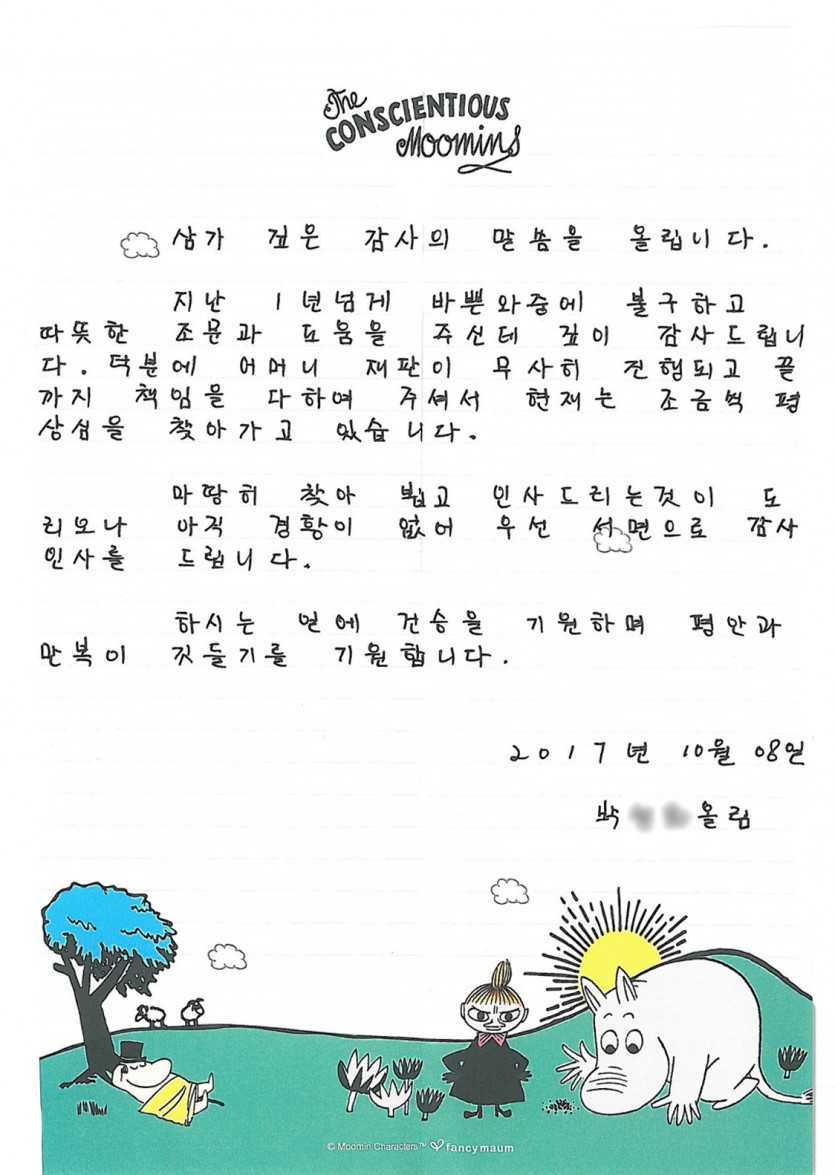 The
CONSCIENTIOUS
Moomins
삼가 깊은 감사의 말씀을 올립니다.
지난 1년넘게 바쁜와중에 불구하고
따뜻한 조문과 도움을 주신데 깊이 감사드립니
다. 덕분에 어머니 재판이 무사히 진행되고 끝
까지 책임을 다하여 주셔서 현재는 조금씩 평
상심을 찾아가고 있습니다.
마땅히 찾아 뵙고 인사드리는것이 도
리오나 아직 경황이 없어 우선 서면으로 감사
인사를 드립니다.
하시는 일에 건승을 기원하며 평안과
만복이 깃들기를 기원합니다.
2017년 10월 08일
박 올림
© Moomin Characters™ fancymaum